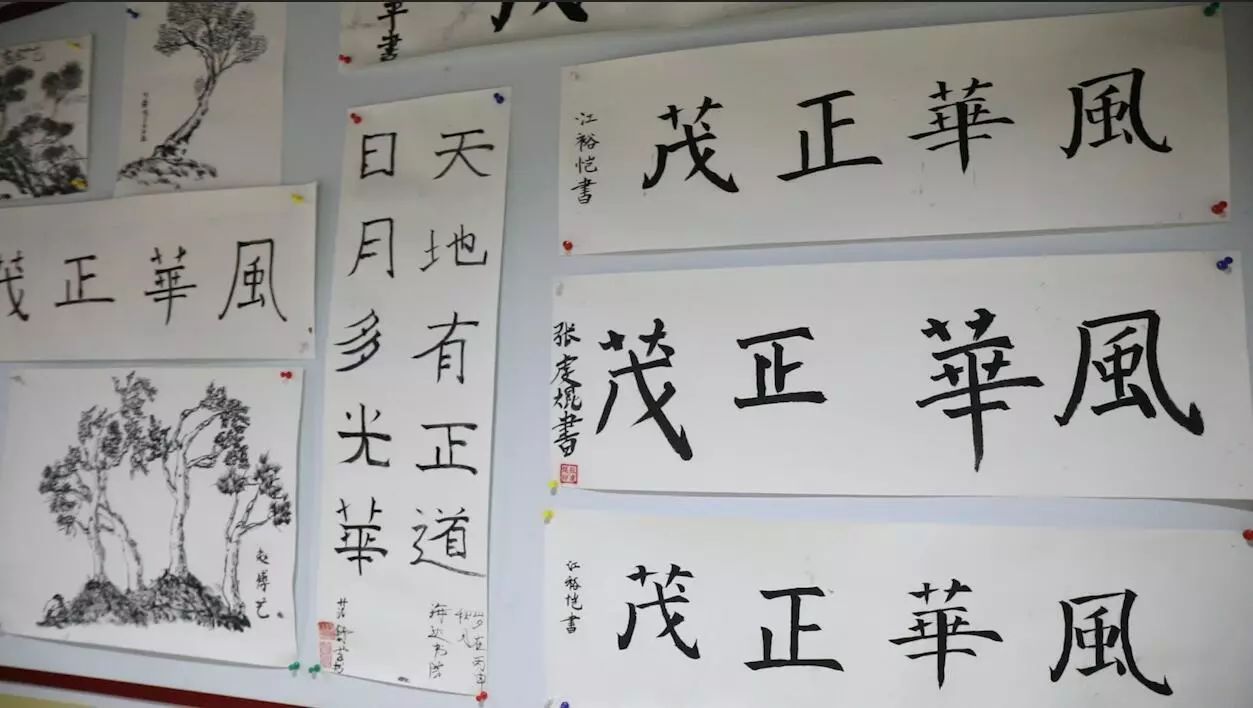 風華正茂
天地有正道
日月多光華
風華正茂
江裕恺書
風華正茂
書
風華正茂
江裕恺書
書